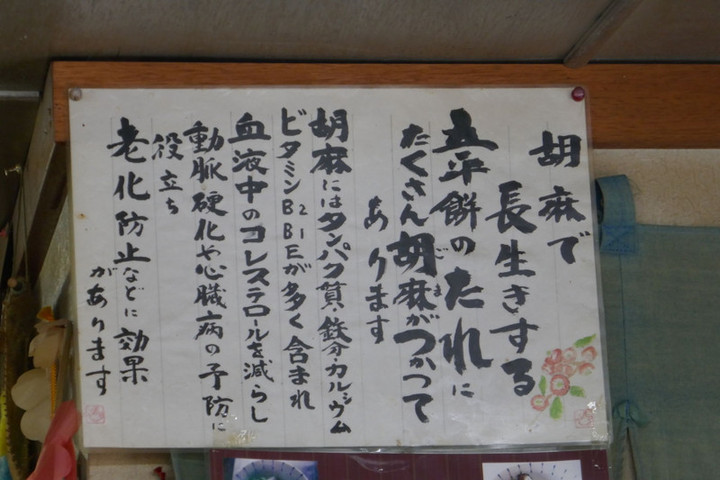 胡麻で
長生きする
五平餅のたれに
たくさん胡麻がつかって
ごま
あります
胡麻にはタンパク質・鉄分カルシウム
ビタミンB2B1Eが多く含まれ
血液中のコレステロールを減らし
動脈硬化や心臓病の予防に
役立ち
老化防止などに効果
があります